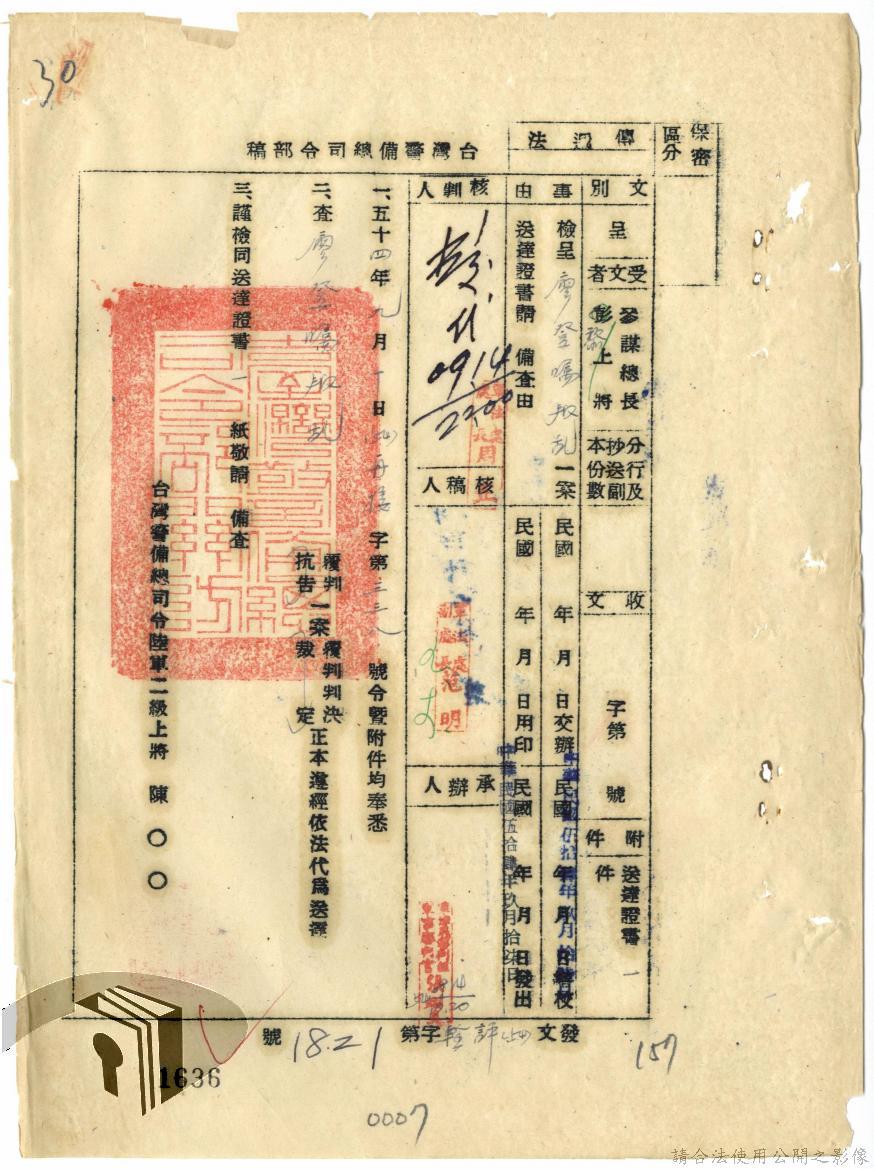 30
保密
區分
傳遞法
台灣警備總司令部稿
文別
呈
受文者
參謀總長
彭上將
黎
分行及
抄送副
本份數
收文
字第
號
附件
送達證書一
件
事由
檢呈廖登囑叛乱一案
送達證書請 備查由
民國 年 月 日交辦
民國 年 月 日用印
民國 年 月 日繕校
民國 年 月 日發出
中華民國伍拾肆年玖月拾柒日
核判人
0914
2200
核稿人
范明
承辦人
0914
一、五十四年九月一日
字第
號令暨附件均奉悉
二、查廖登囑叛乱
覆判
抗告
一案
覆判判決
裁定
正本遵經依法代爲送達
三、謹檢同送達證書一紙敬請 備查
台灣警備總司令陸軍二級上將 陳〇〇
發文
字第
1821
號
157
1636
0007
請合法使用公開之影像